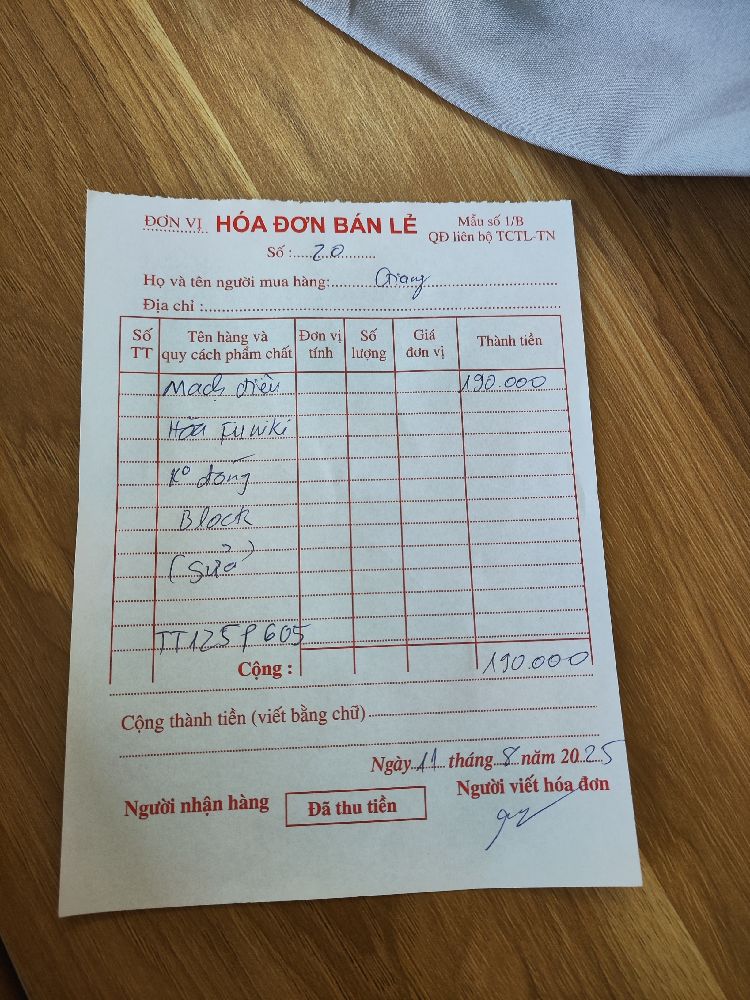 ĐƠN VỊ HÓA ĐƠN BÁN LẺ Mẫu số 1/B
QĐ liên bộ TCTL-TN
Số : 20
Họ và tên người mua hàng: Giang
Địa chỉ :
Số TT Tên hàng và quy cách phẩm chất Đơn vị tính Số lượng Giá đơn vị Thành tiền
Mạch điều 190.000
Hòa Funiki
K° đóng
Block
(Sửa)
TT125P605
Cộng : 190.000
Cộng thành tiền (viết bằng chữ)
Ngày 11 tháng 8 năm 2025
Người nhận hàng Đã thu tiền Người viết hóa đơn